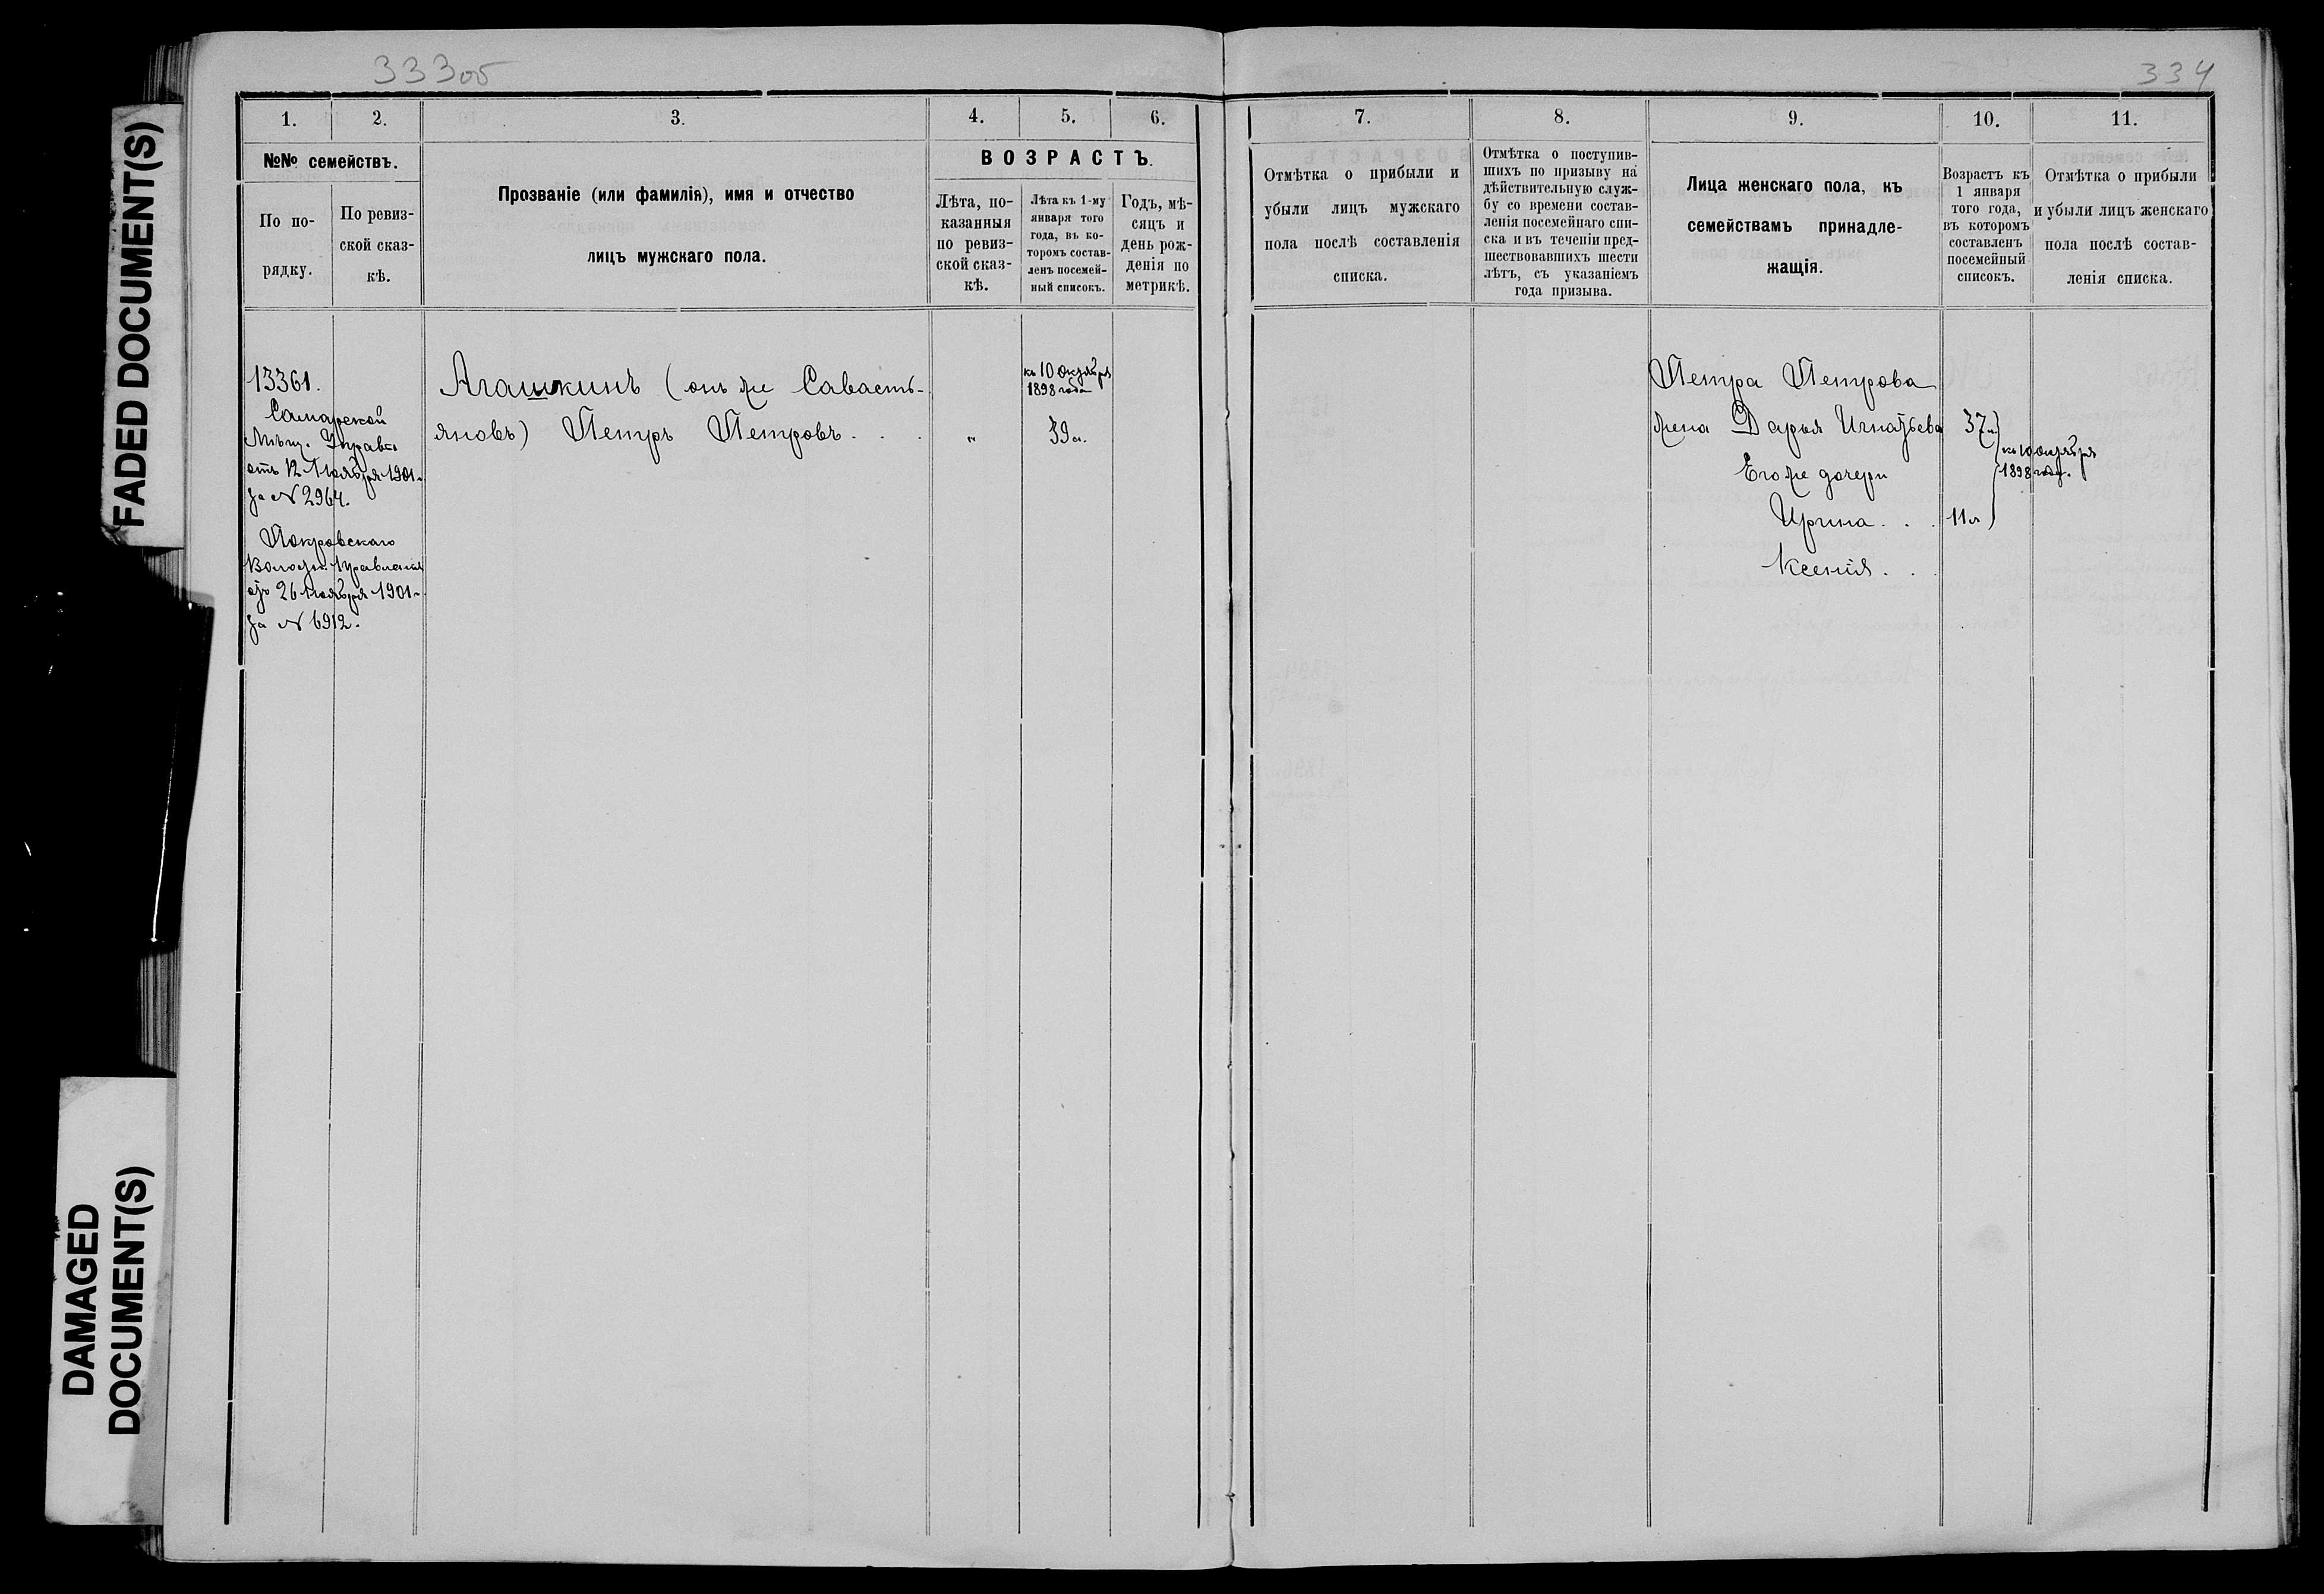 FADED DOCUMENT(S)
DAMAGED
DOCUMENT(S)
333об
1.
2.
3.
4.
5.
6.
№№ семействъ.
По по-
рядку.
По ревиз-
ской сказ-
кѣ.
Прозваніе (или фамилія), имя и отчество
лицъ мужскаго пола.
ВОЗРАСТЪ.
Лѣта, по-
казанныя
по ревиз-
ской сказ-
кѣ.
Лѣта къ 1-му
января того
года, въ ко-
торомъ состав-
ленъ посемей-
ный списокъ.
Годъ, мѣ-
сяцъ и
день рож-
денія по
метрикѣ.
13361.
Самарской
Мѣщ. Управы
отъ 12 Ноября 1901 г.
за № 2964.
Покровскаго
Волостн. Правленія
отъ 26 Ноября 1901 г.
за № 6912.
Агашкинъ (онъ же Савасть-
яновъ) Петръ Петровъ . . .
"
къ 10 октября
1898 года
39 л.
334
7.
8.
9.
10.
11.
Отмѣтка о прибыли и
убыли лицъ мужскаго
пола послѣ составленія
списка.
Отмѣтка о поступив-
шихъ по призыву на
дѣйствительную служ-
бу со времени состав-
ленія посемейнаго спи-
ска и въ теченіи пред-
шествовавшихъ шести
лѣтъ, съ указаніемъ
года призыва.
Лица женскаго пола, къ
семействамъ принадле-
жащія.
Возрастъ къ
1 января
того года,
въ которомъ
составленъ
посемейный
списокъ.
Отмѣтка о прибыли
и убыли лицъ женскаго
пола послѣ состав-
ленія списка.
Петра Петрова
жена Дарья Игнатьева 37 л.
Его же дочери
Ирина . . . 11 л
Ксенія . . .
къ 10 октября
1898 года.